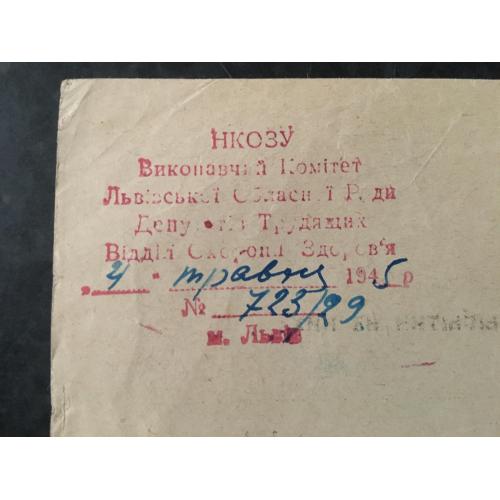 НКОЗУ
Виконавчий Комітет
Львівської Обласної Ради
Депутатів Трудящих
Відділ Охорони Здоров'я
„ 4 " травня 1945 р
№ 723/29
м. Львів